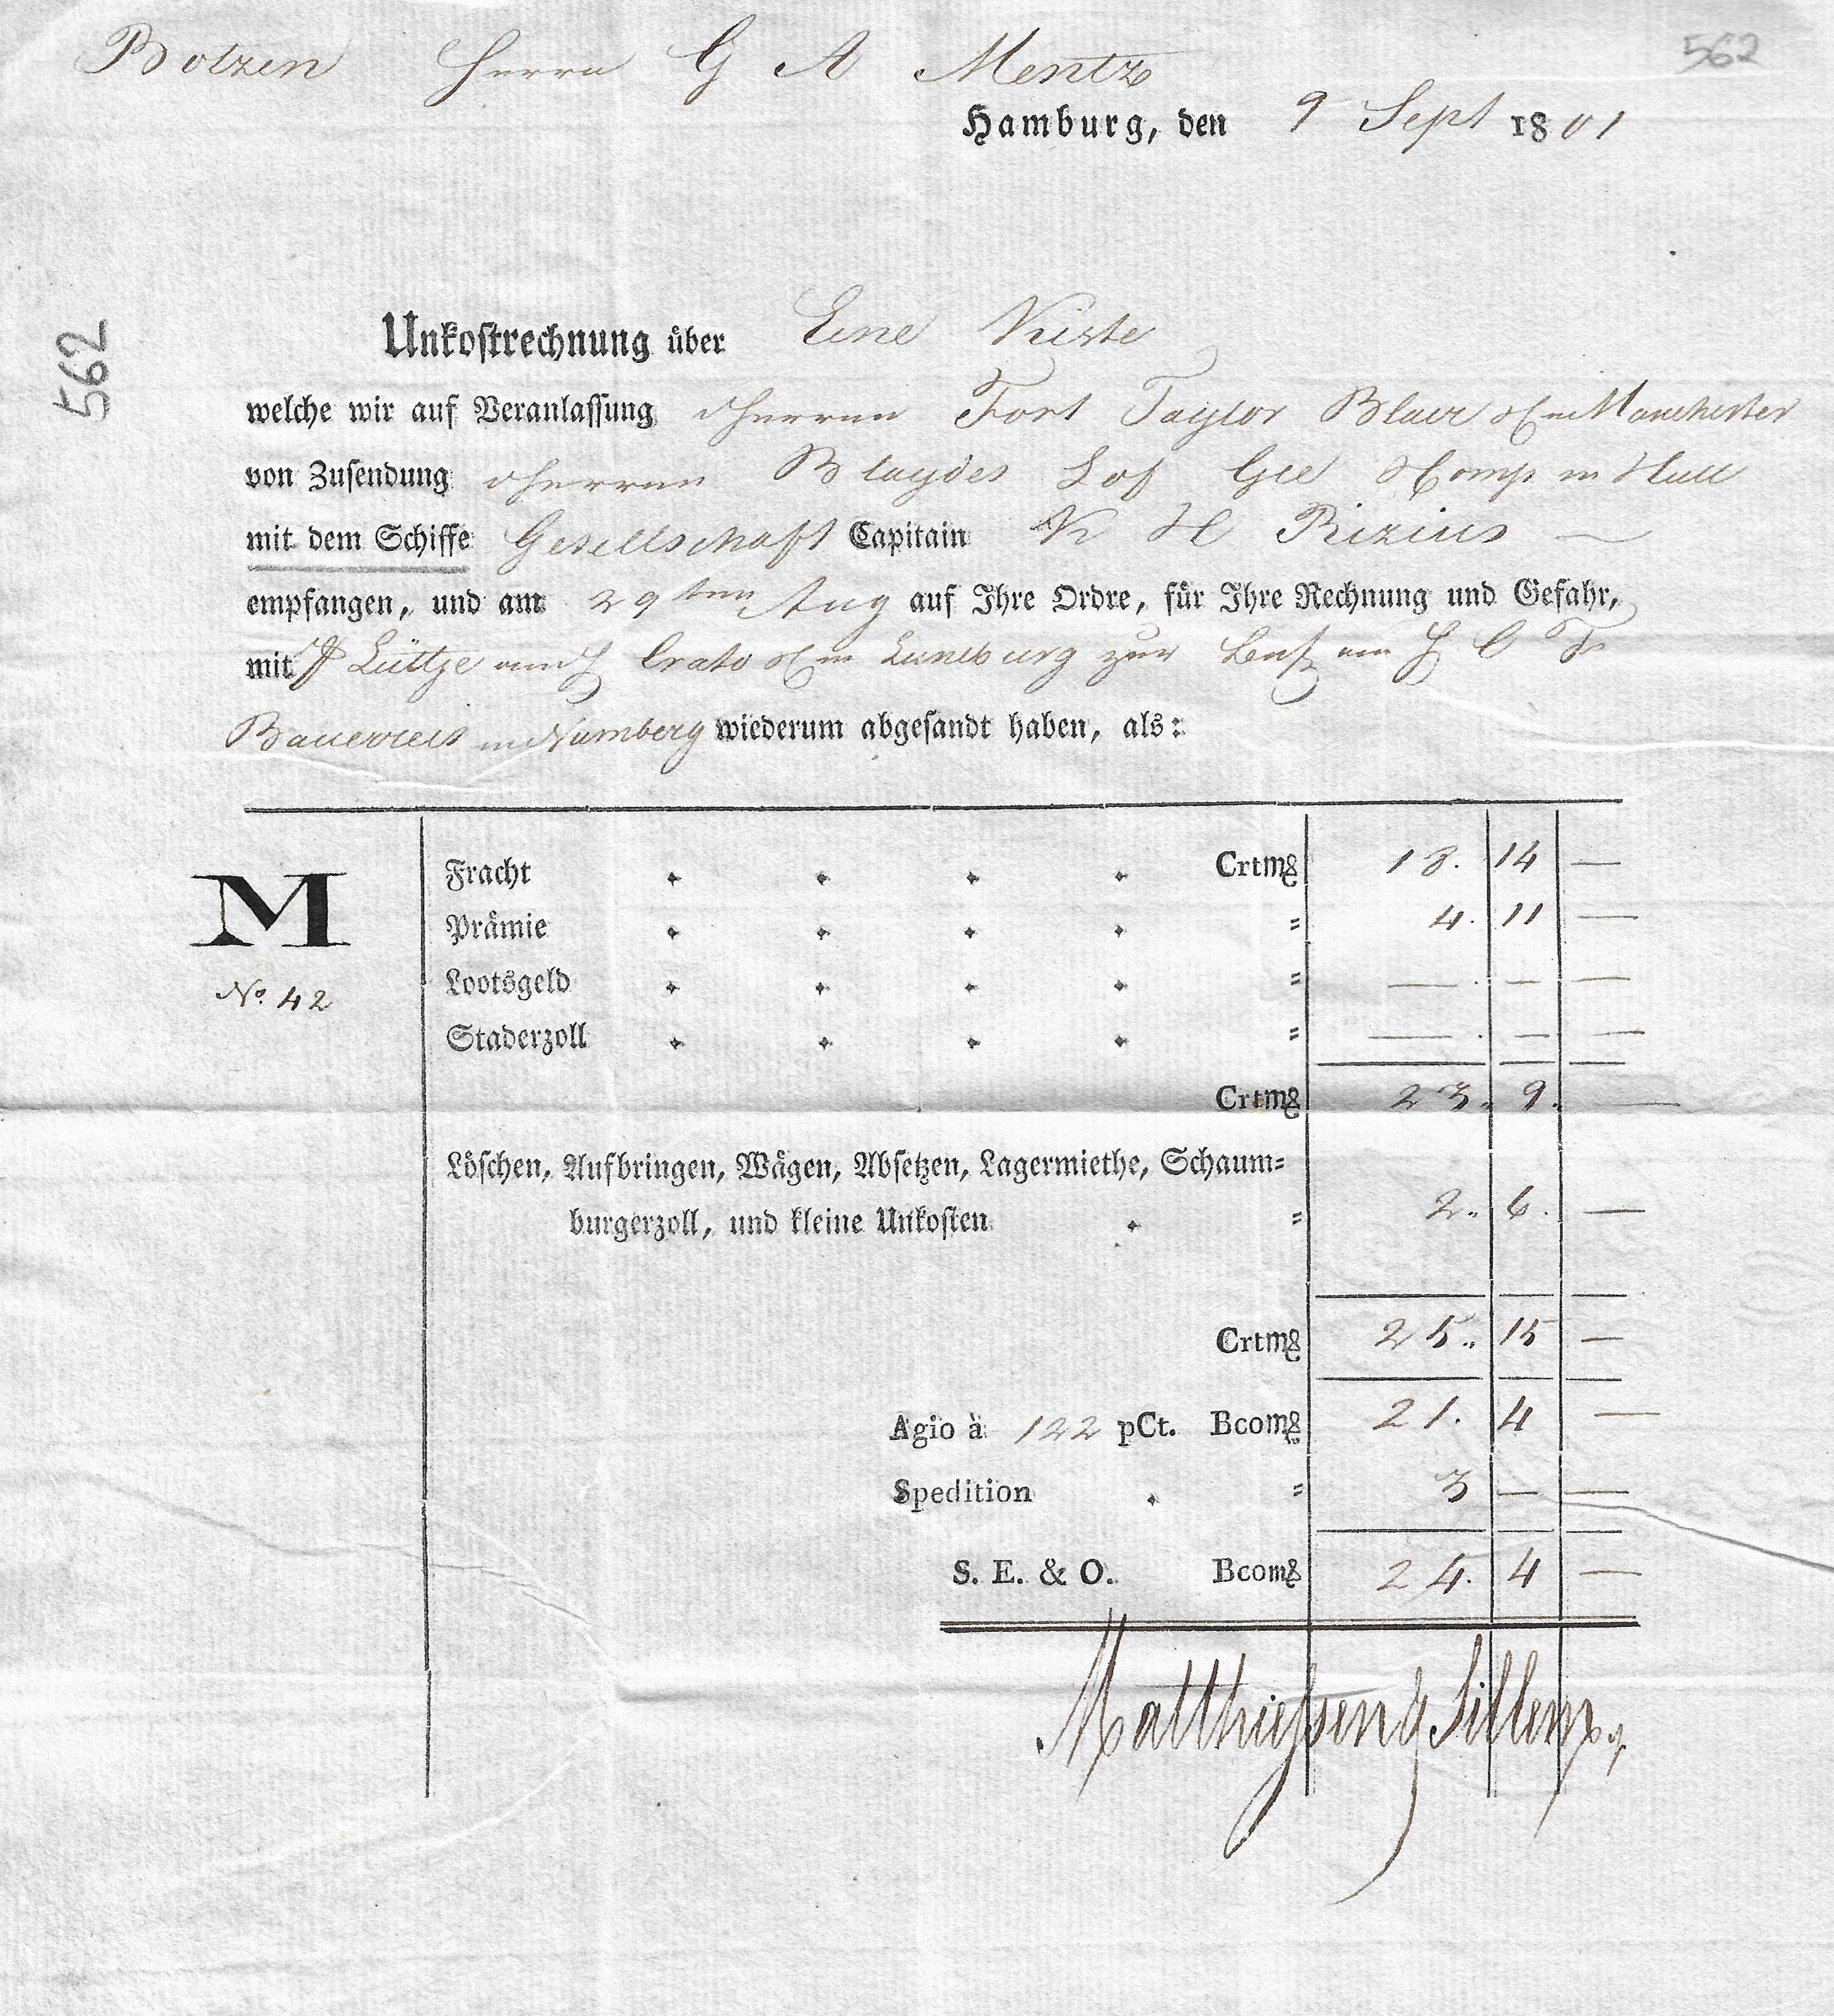 562
Botzen Herrn G A Mentz
Hamburg, den 9 Sept 1801
562
Unkostrechnung über Eine Kiste
welche wir auf Veranlassung Herren Fort Taylor & in Manchester
von Zusendung Herren Blaydes Gee & Comp in Hull
mit dem Schiffe Gesellschaft Capitain K H Rizius
empfangen, und am 29ten Aug auf Ihre Ordre, für Ihre Rechnung und Gefahr,
mit Lüttje Crato & in Luneburg zur an
in Nürnberg wiederum abgesandt haben, als:
M
No. 42
Fracht Crtm₰ 18. 14 —
Prämie " 4. 11 —
Lootsgeld " — . — —
Staderzoll " — . — —
Crtm₰ 23. 9. —
Löschen, Aufbringen, Wägen, Absetzen, Lagermiethe, Schaum=
burgerzoll, und kleine Unkosten " 2. 6. —
Crtm₰ 25. 15 —
Agio à 122 pCt. Bcom₰ 21. 4 —
Spedition " 3 — —
S. E. & O. Bcom₰ 24. 4 —
Matthiessen & Sillem